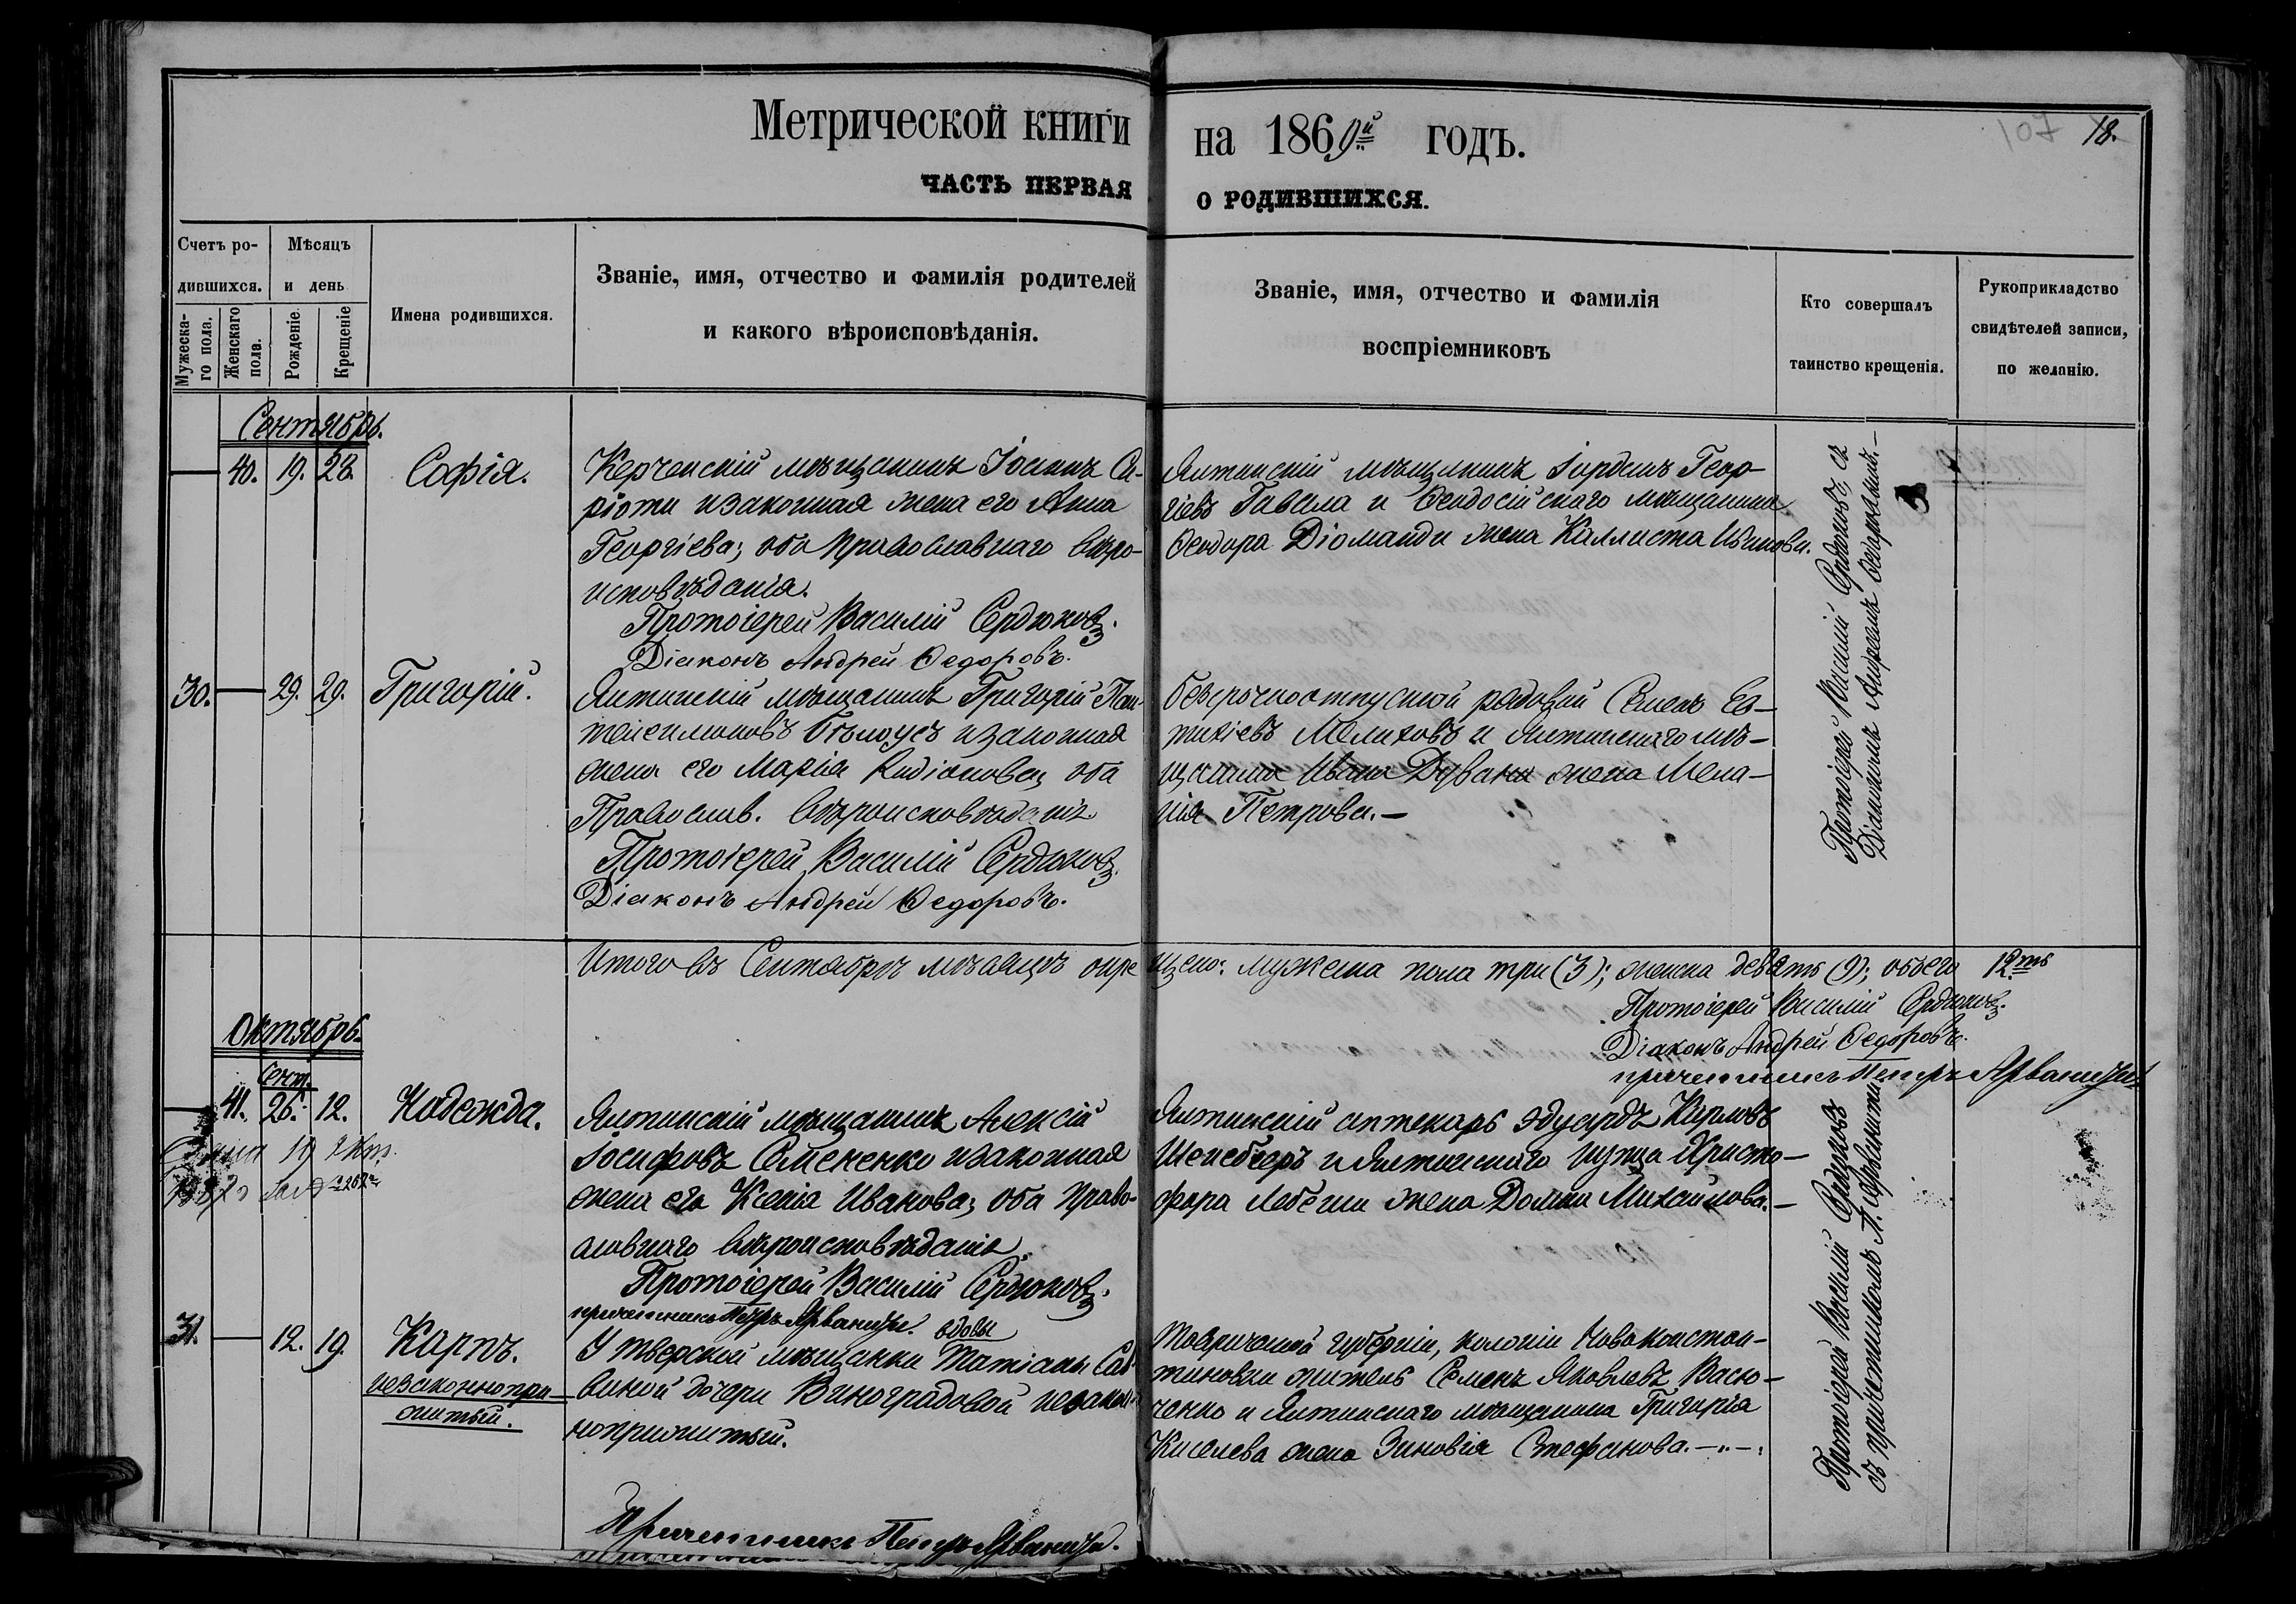 Метрической книги на 1869й годъ.
18.
ЧАСТЬ ПЕРВАЯ О РОДИВШИХСЯ.
Счетъ ро-
дившихся.
Мѣсяцъ
и день
Мужеска-
го пола.
Женскаго
пола.
Рожденіе.
Крещеніе
Имена родившихся.
Званіе, имя, отчество и фамилія родителей
и какого вѣроисповѣданія.
Званіе, имя, отчество и фамилія
воспріемниковъ
Кто совершалъ
таинство крещенія.
Рукоприкладство
свидѣтелей записи,
по желанію.
Сентябрь.
40. 19. 28. Софія.
Керченскій мѣщанинъ Іоаннъ Си-
ріоти изаконная жена его Анна
Георгіева; оба православнаго вѣро-
исповѣданія.
Протоіерей Василій Сердюковъ.
Діаконъ Андрей Ѳедоровъ.
Ялтинскій мѣщанинъ Іорданъ Геор-
гіевъ Гавала и Ѳеодосійскаго мѣщанина
Ѳеодора Діоманди жена Каллиста Иванова.
Протоіерей Василій Сердюковъ, съ
Діакономъ Андреемъ Ѳедоровымъ.-
30. 29. 29. Григорій.
Ялтинскій мѣщанинъ Григорій Пан-
телеимоновъ Бѣлоусъ изаконная
жена его Марія Родіонова, оба
Православ. вѣроисповѣданія
Протоіерей Василій Сердюковъ.
Діаконъ Андрей Ѳедоровъ.
безсрочноотпускной рядовой Семенъ Ев-
тихіевъ Мелиховъ и Ялтинскаго мѣ-
щанина Ивана Дувана жена Мела-
нія Петрова.-
Итого въ Сентябрѣ мѣсяцѣ окре щено: мужеска пола три (3); женска девять (9); обоего 12ть
Протоіерей Василій Сердюковъ.
Діаконъ Андрей Ѳедоровъ.
причетникъ Петръ Арваниди
Октябрь
Сент.
41. 26. 12. Надежда.
Ялтинскій мѣщанинъ Алексій
Іосифовъ Семененко изаконная
жена его Ксенія Иванова; оба право-
славнаго вѣроисповѣданія.
Протоіерей Василій Сердюковъ.
причетникъ Петръ Арваниди.
Ялтинскій аптекарь Эдуардъ Карловъ
и Ялтинскаго купца Христо-
фора жена Домна Михайлова.-
Протоіерей Василій Сердюковъ
съ причетникомъ П. Арваниди
31. 12. 19. Карпъ.
незаконнопри-
житый.
вдовы
У тверской мѣщанки Татіаны Сав-
виной дочери Виноградовой незакон-
ноприжитый.
Таврической губерніи, колоніи Новоконстан-
тиновки житель Семенъ Яковлевъ Васю-
ченко и Ялтинскаго мѣщанина Григорія
Киселева жена Зиновія Стефанова.-
Причетникъ Петръ Арваниди.